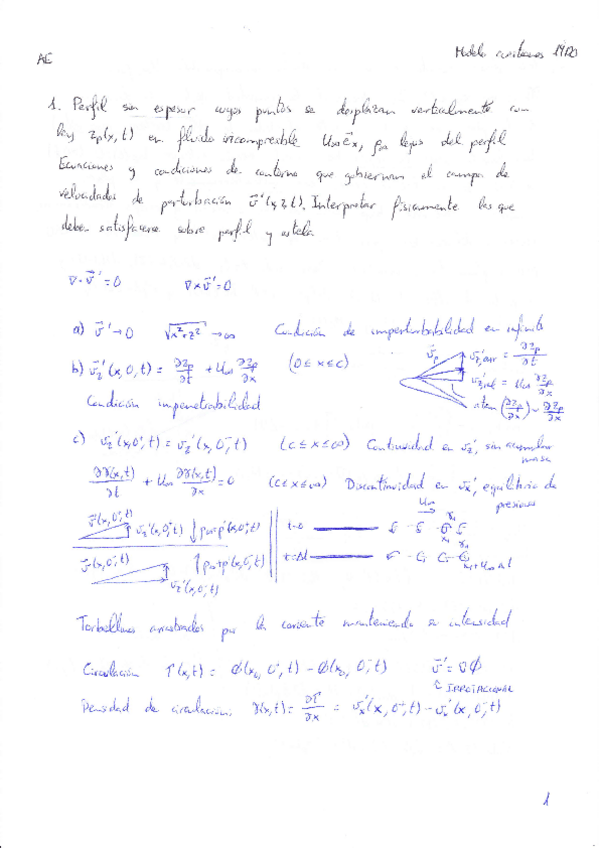 AE
Modelo cuestiones 19/20
1. Perfil sin espesor cuyos puntos se desplazan verticalmente con
ley z_p(x,t) en fluido incompresible U∞ e⃗_x, ρ∞ lejos del perfil
Ecuaciones y condiciones de contorno que gobiernan el campo de
velocidades de perturbación v⃗'(x,z,t). Interpretar físicamente las que
deben satisfacerse sobre perfil y estela.
∇·v⃗'=0 ∇×v⃗'=0
a) v⃗'→0 √(x²+z²) →∞ Condición de imperturbabilidad en infinito
b) v_z'(x,0,t) = ∂z_p/∂t + U∞ ∂z_p/∂x (0≤x≤c)
Condición impenetrabilidad
v⃗_p v_z',arr = ∂z_p/∂t
v_z',rel = U∞ ∂z_p/∂x
atan(∂z_p/∂x) ≈ ∂z_p/∂x
c) v_z'(x,0⁺,t) = v_z'(x,0⁻,t) (c≤x≤∞) Continuidad en v_z', sin acumular
masa
∂γ(x,t)/∂t + U∞ ∂γ(x,t)/∂x = 0 (c≤x≤∞) Discontinuidad en v_x', equilibrio de
presiones
v⃗(x,0⁺,t) v_z'(x,0⁺,t) ↓p∞+p'(x,0⁺,t)
v⃗(x,0⁻,t) v_z'(x,0⁻,t) ↑p∞+p'(x,0⁻,t)
U∞
t=0 γ₁ x₁
t=Δt γ₁ x₁+U∞Δt
Torbellinos arrastrados por la corriente manteniendo su intensidad
Circulación Γ(x,t) = Φ(x₀,0⁺,t) − Φ(x₀,0⁻,t) v⃗'=∇Φ
IRROTACIONAL
Densidad de circulación: γ(x,t) = ∂Γ/∂x = v_x'(x,0⁺,t) − v_x'(x,0⁻,t)
1